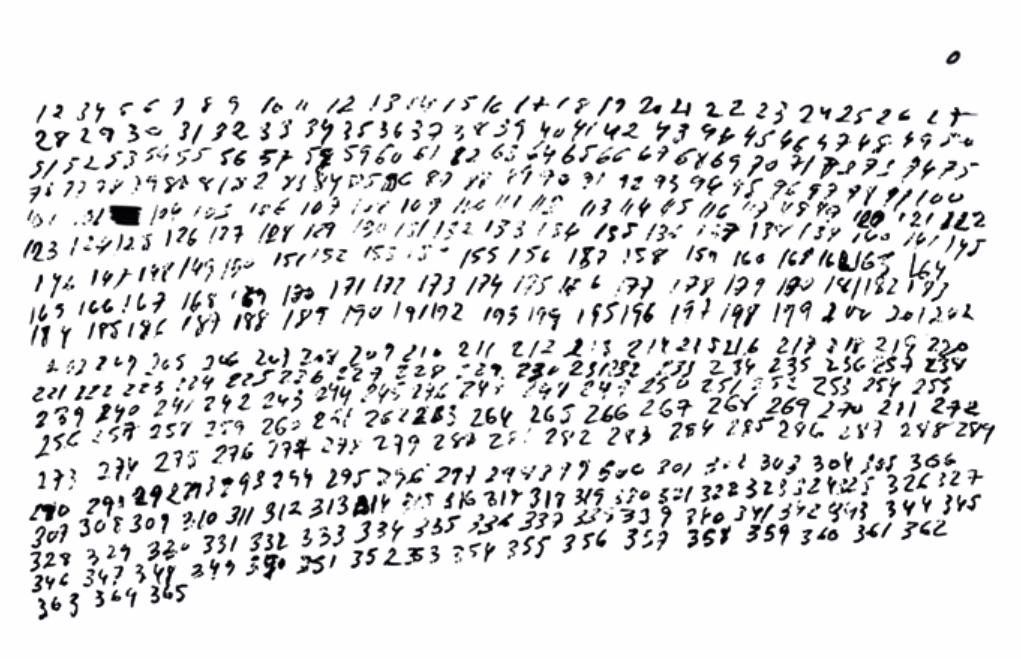 0
12 34 5 6 7 8 9 10 11 12 13 14 15 16 17 18 19 20 21 22 23 24 25 26 27
28 29 30 31 32 33 34 35 36 37 38 39 40 41 42 43 44 45 46 47 48 49 50
51 52 53 54 55 56 57 58 59 60 61 62 63 64 65 66 67 68 69 70 71 73 74 75
76 77 78 79 80 81 82 83 84 85 86 87 88 89 90 91 92 93 94 95 96 97 98 99 100
101 104 105 106 107 108 109 110 111 112 113 114 115 116 117 120 121 122
123 124 125 126 127 128 129 130 131 132 133 134 135 136 137 138 139 140 141 145
146 147 148 149 150 151 152 153 155 156 157 158 159 160 168 163 164
165 166 167 168 169 170 171 172 173 174 175 176 177 178 179 180 181 182 183
184 185 186 187 188 189 190 191 192 193 194 195 196 197 198 199 200 201 202
203 204 205 206 207 208 209 210 211 212 213 214 215 216 217 218 219 220
221 222 223 224 225 226 227 228 229 230 231 232 233 234 235 236 237 238
239 240 241 242 243 244 245 246 247 248 249 250 251 252 253 254 255
256 257 258 259 260 261 262 263 264 265 266 267 268 269 270 271 272
273 274 275 276 277 278 279 280 281 282 283 284 285 286 287 288 289
290 291 292 293 293 294 295 296 297 298 399 300 301 302 303 304 305 306
307 308 309 310 311 312 313 314 315 316 317 318 319 320 321 322 323 324 325 326 327
328 329 330 331 332 333 334 335 336 337 338 339 340 341 342 343 344 345
346 347 348 349 350 351 352 353 354 355 356 357 358 359 360 361 362
363 364 365